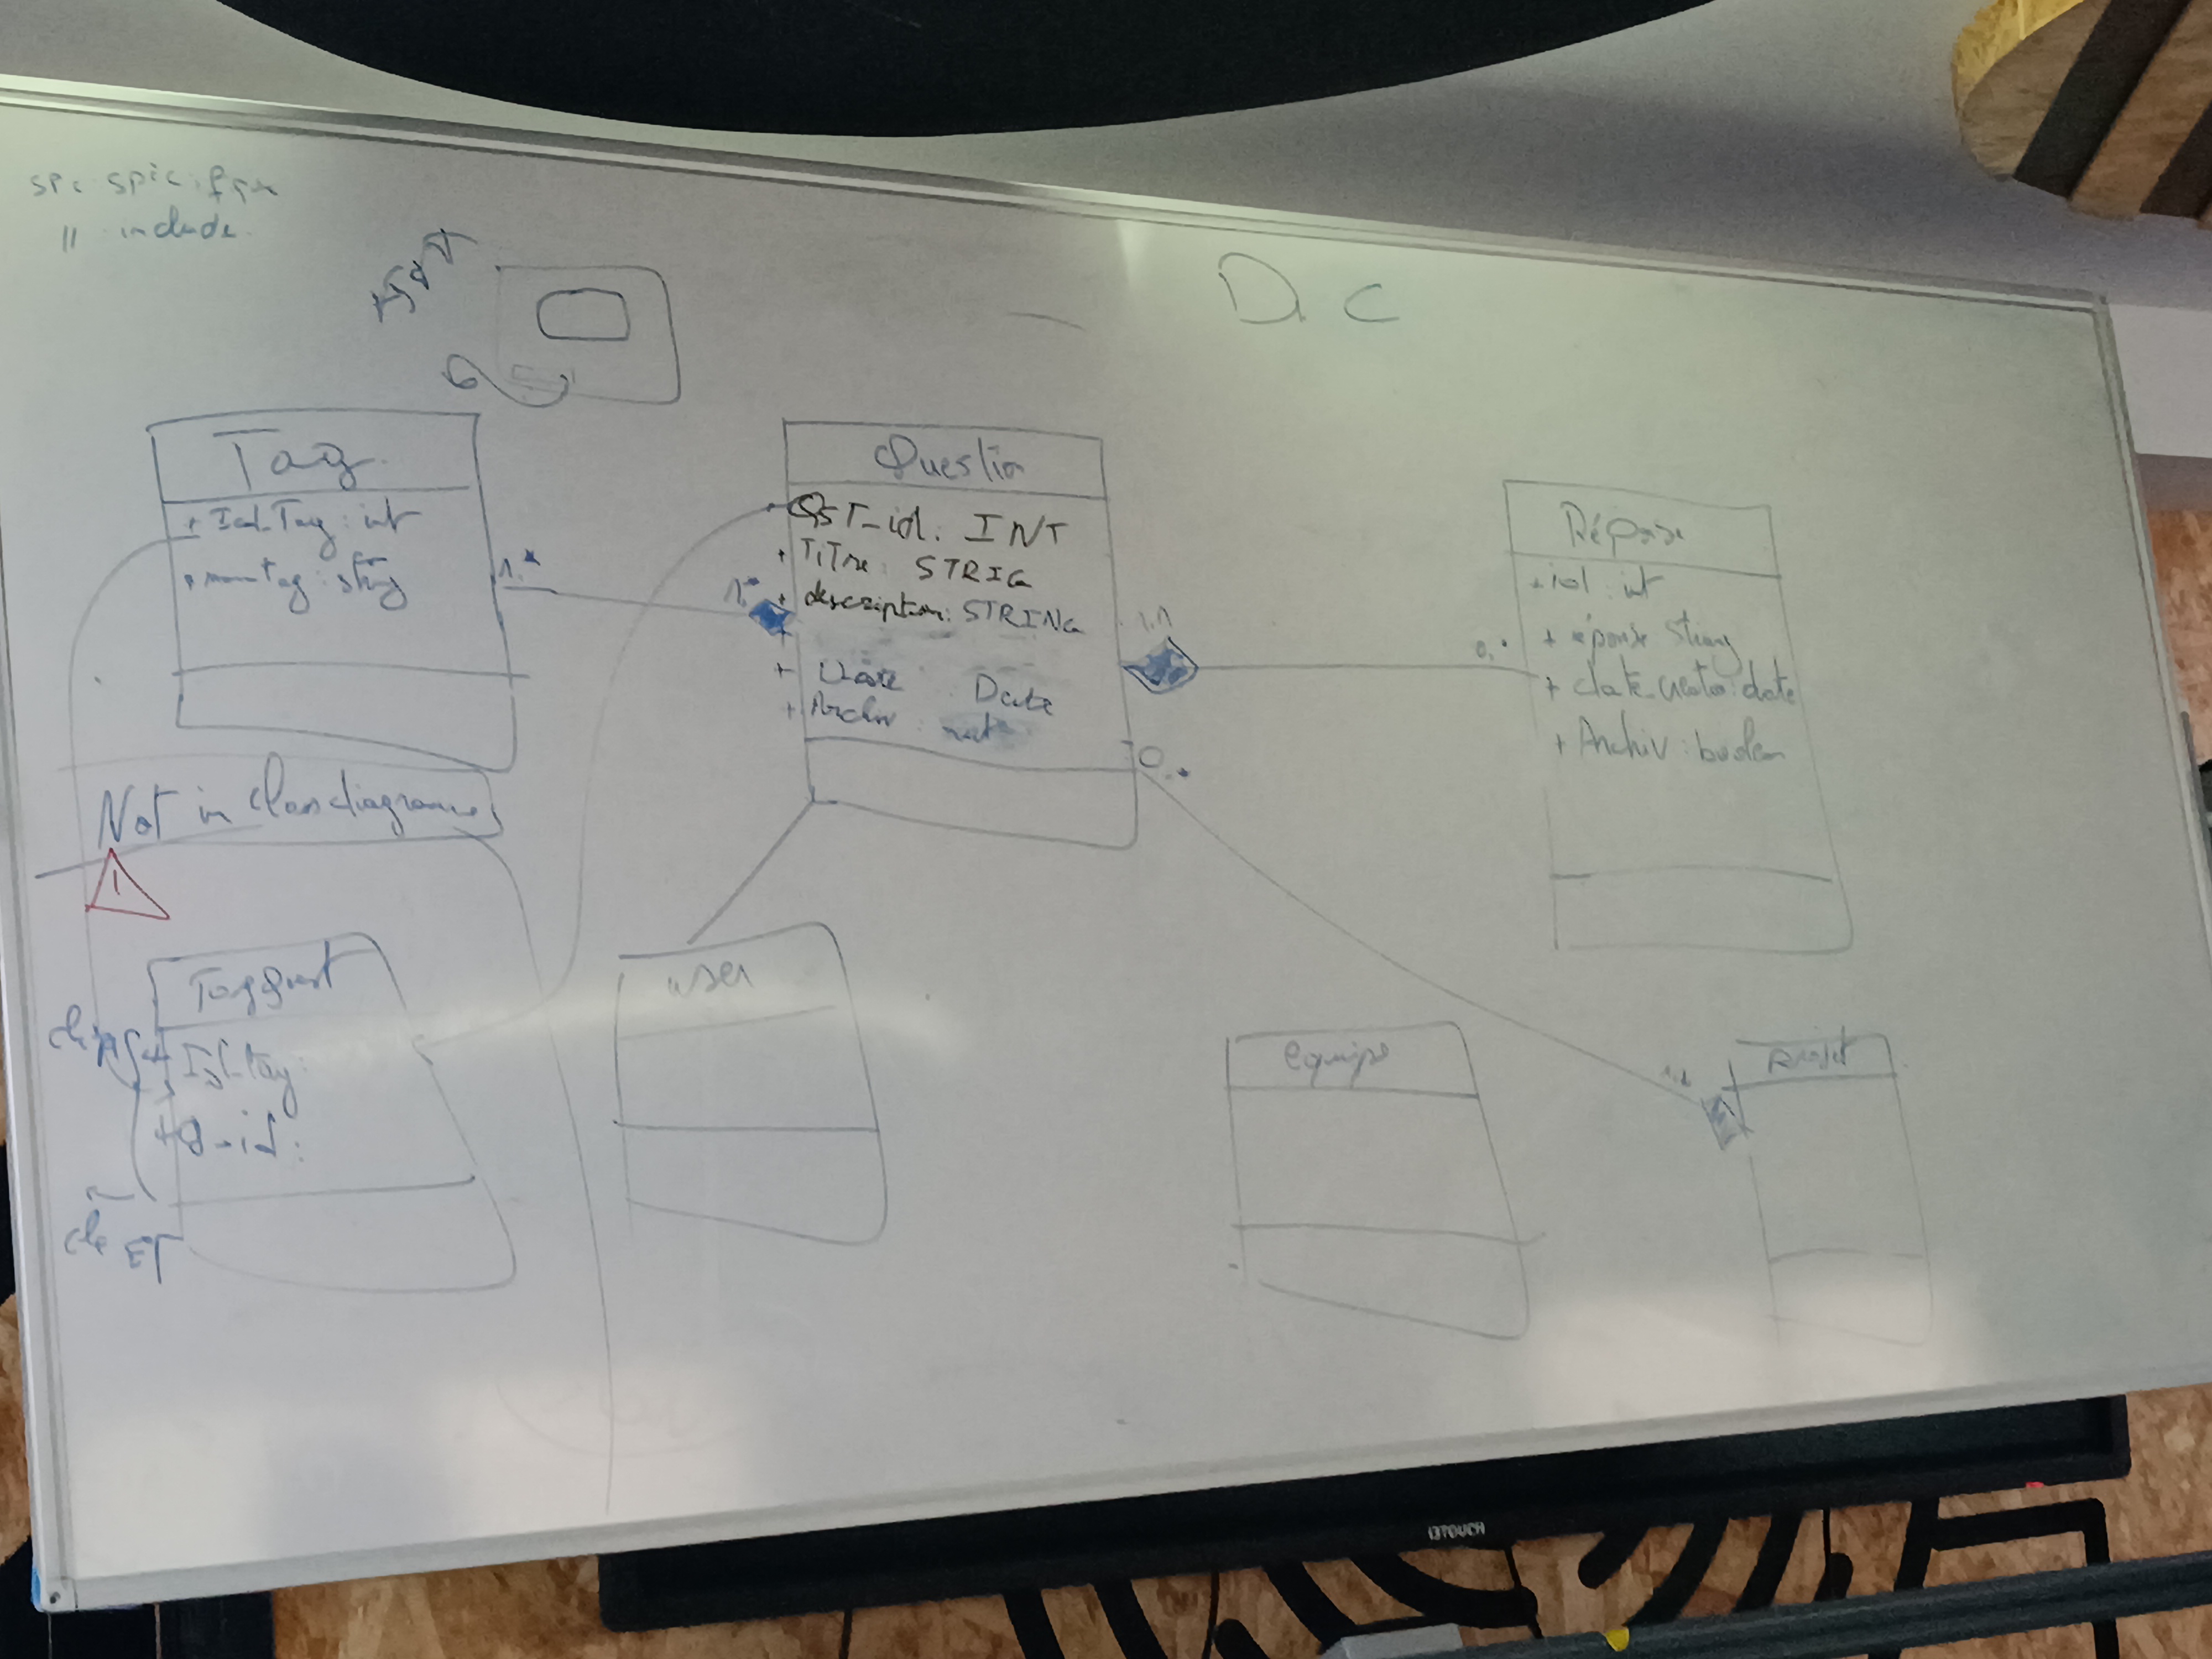 include
D. C
Tag
+ Id_Tag : int
+ nomtag : string
1..*
1..*
Question
QST_id : INT
+ TiTre : STRIG
+ description : STRING
+
+ Date : Date
+ Archiv :
1..1
0..*
0..*
Réponse
+ id : int
+ réponse string
+ date_creatio : date
+ Archiv : boolen
Not in class diagramme
!
TagQuest
+ Id_tag :
+ Q_id :
cle
cle ET
user
equipe
projet
i3TOUCH